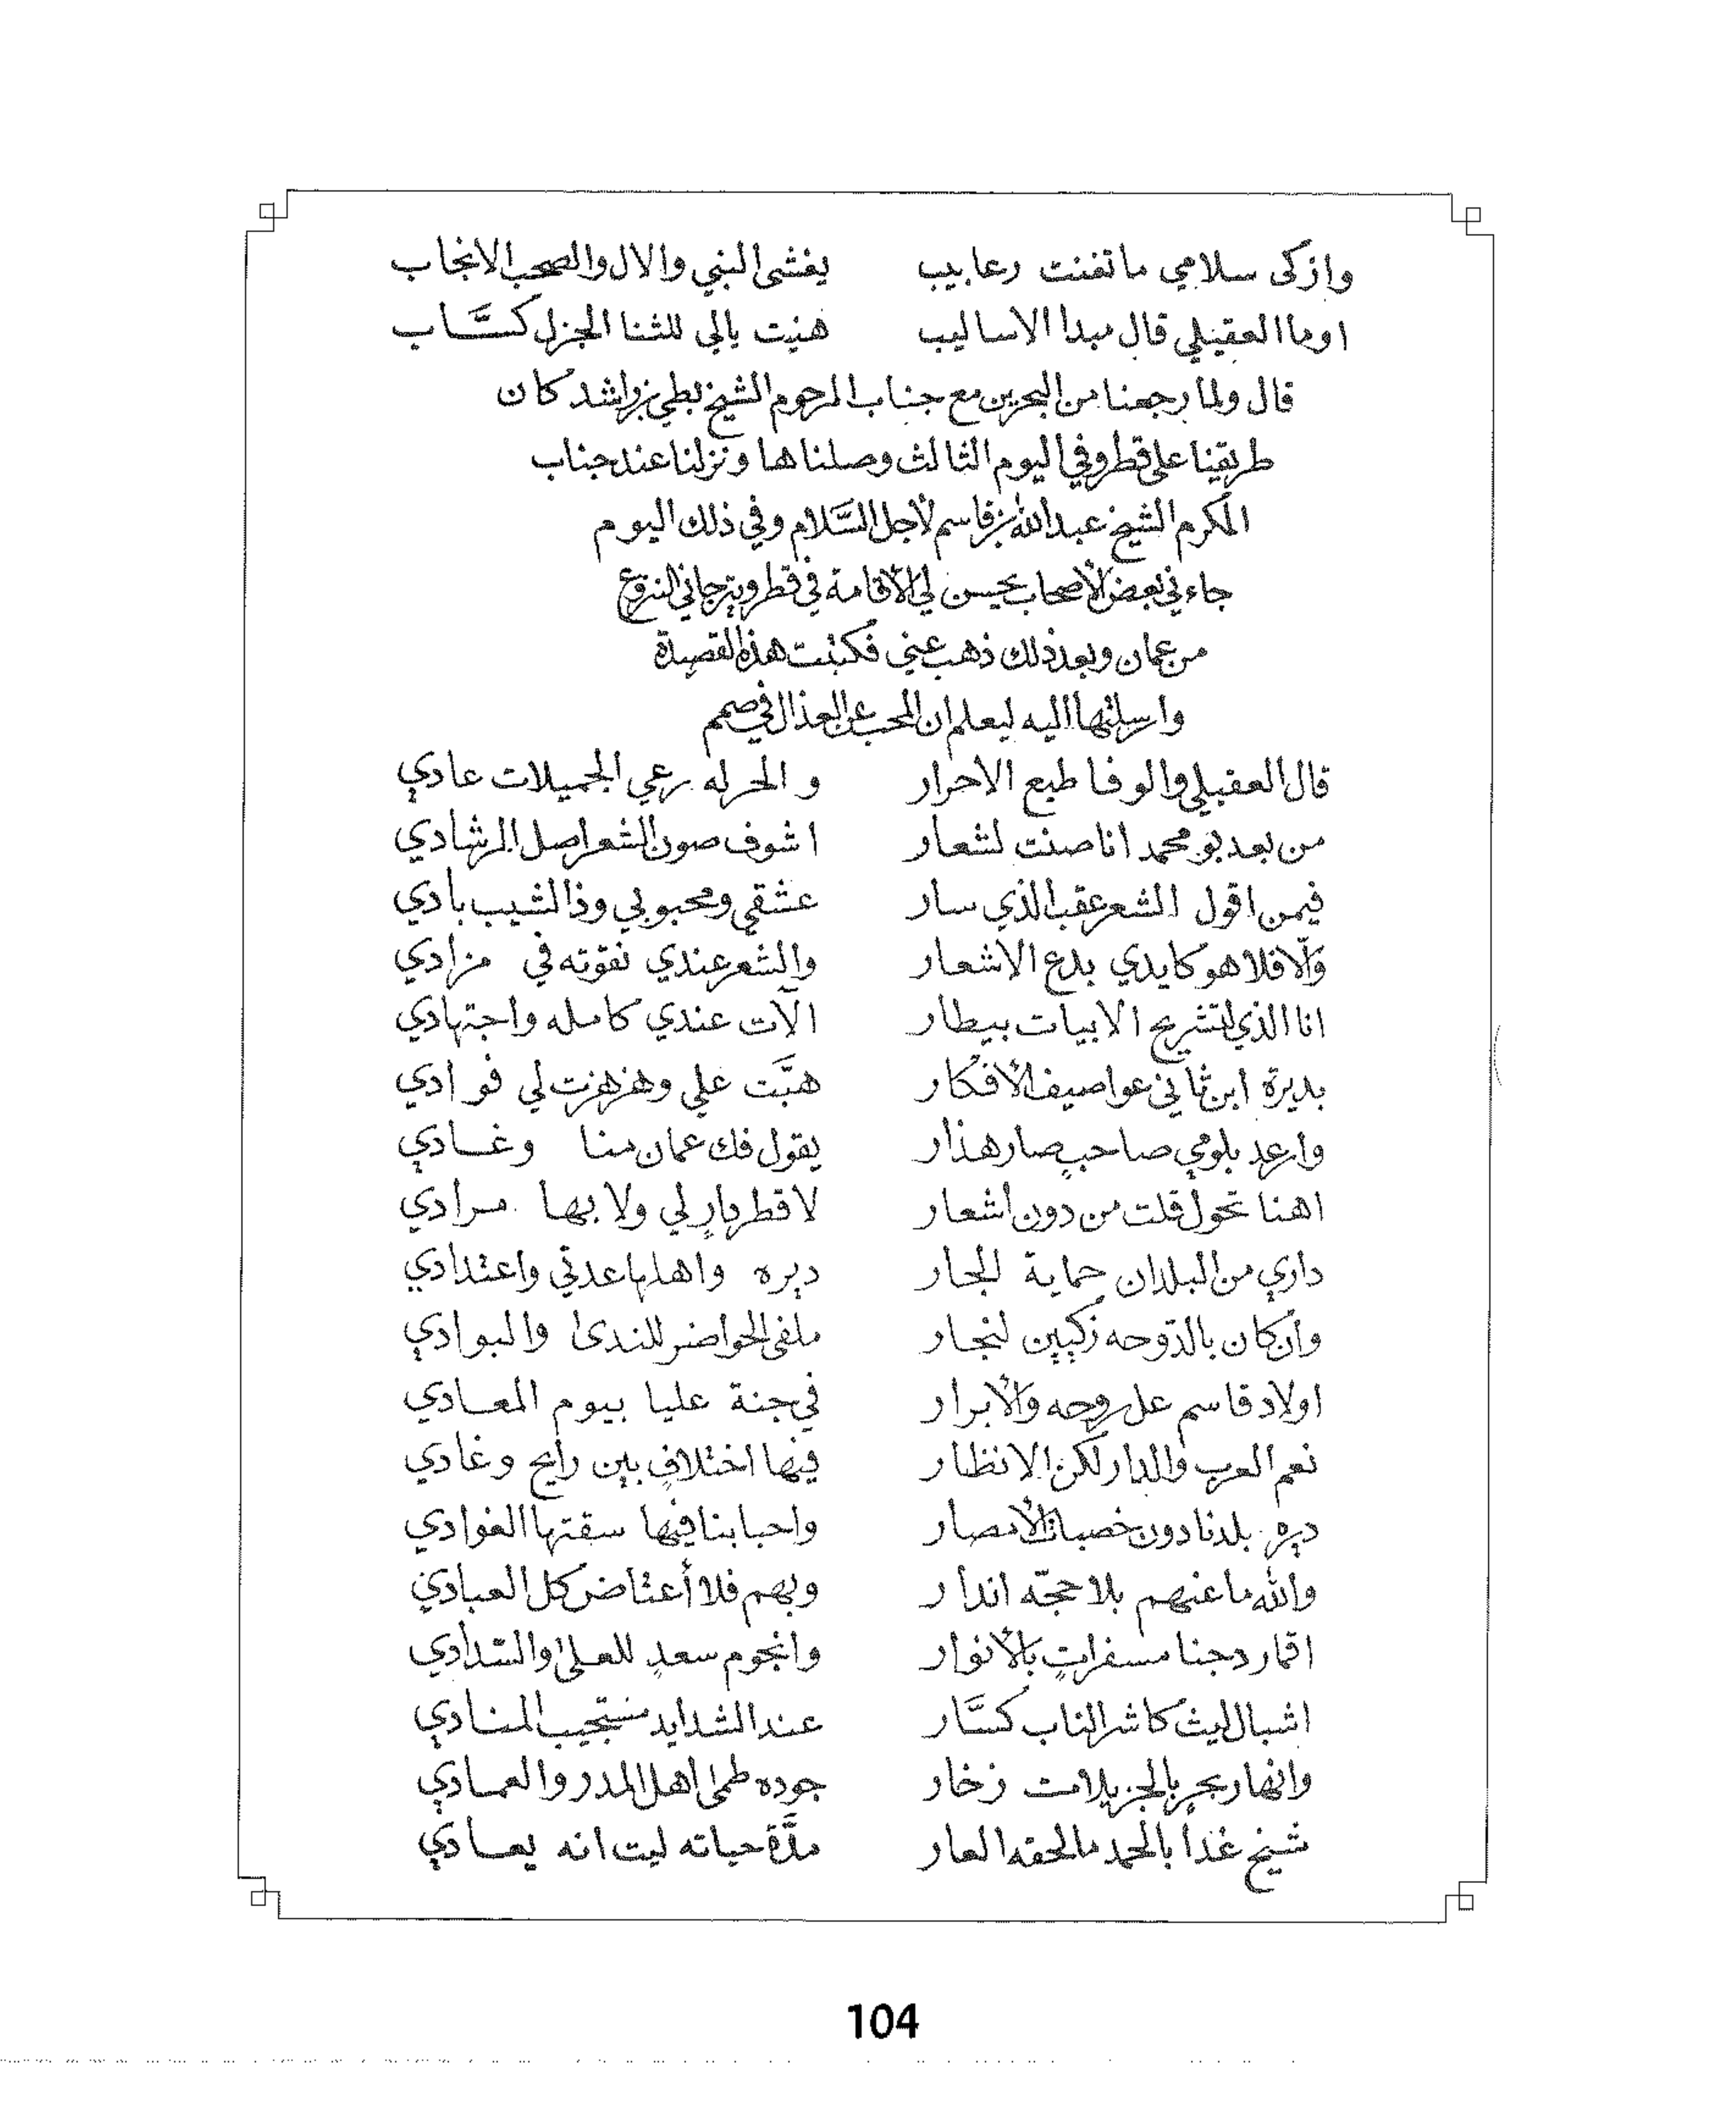 وازكى سلامي ما تغنت رعابيب يغشى النبي والال والصحب الانجاب
اوما العقيلي قال مبدا الاساليب هنيت بالي للثنا الجزل كسَّاب
قال ولما رجعنا من البحرين مع جناب المرحوم الشيخ بطي بن راشد كان
طريقينا على قطر وفي اليوم الثالث وصلناها ونزلنا عند جناب
المكرم الشيخ عبد الله بن قاسم لأجل السَّلام وفي ذلك اليوم
جاءني بعض الأصحاب يحسن لي الأقامة في قطر ويترجاني النزوع
من عمان وبعد ذلك ذهب عني فكتبت هذه القصيدة
وارسلتها اليه ليعلم ان المحب عن العذال في صمم
قال العقيلي والوفا طبع الاحرار والحر له رعي الجميلات عادي
من بعد بو محمد انا صنت لشعار اشوف صون الشعر اصل الرشادي
فيمن اقول الشعر عقب الذي سار عشقي ومحبوبي وذا لشيب بادي
وَلّا فلا هو كايدي بدع الاشعار والشعر عندي نقوته في مزادي
انا الذي لتشريح الابيات بيطار الآت عندي كامله واجتهادي
بديرة ابن ثاني عواصيف الأفكار هبَّت علي وهزهزت لي فوادي
وارعد بلومي صاحبٍ صار هذار يقول فك عمان منا وغادي
اهنا تحول قلت من دون اشعار لا قطر دارٍ لي ولا بها مرادي
داري من البلدان حماية الجار ديره واهلها عدتي واعتدادي
وأن كان بالدوحه زكيين لنجار ملفى الحواضر للندى والبوادي
اولاد قاسم عل روحه والأبرار في جنة عليا بيوم المعادي
نعم العرب والدار لكن الانظار فيها اختلافٍ بين رايح وغادي
ديره بلدنا دون خصبات الأمصار واحبابنا فيها سقتها الغوادي
والله ما عنهم بلا حجّه اندار وبهم فلا أعتاض كل العبادي
اقمار دجنا مسفراتٍ بالأنوار وانجوم سعدٍ للعلى والسدادي
اشبال ليث كاشر الناب كسَّار عند الشدايد مستجيب المنادي
وانهار بحرٍ بالجزيلات زخار جوده طمى اهل المدر والعمادي
شيخ غدا بالحمد ما لحقه العار مدَّة حياته ليت انه يعادي
104